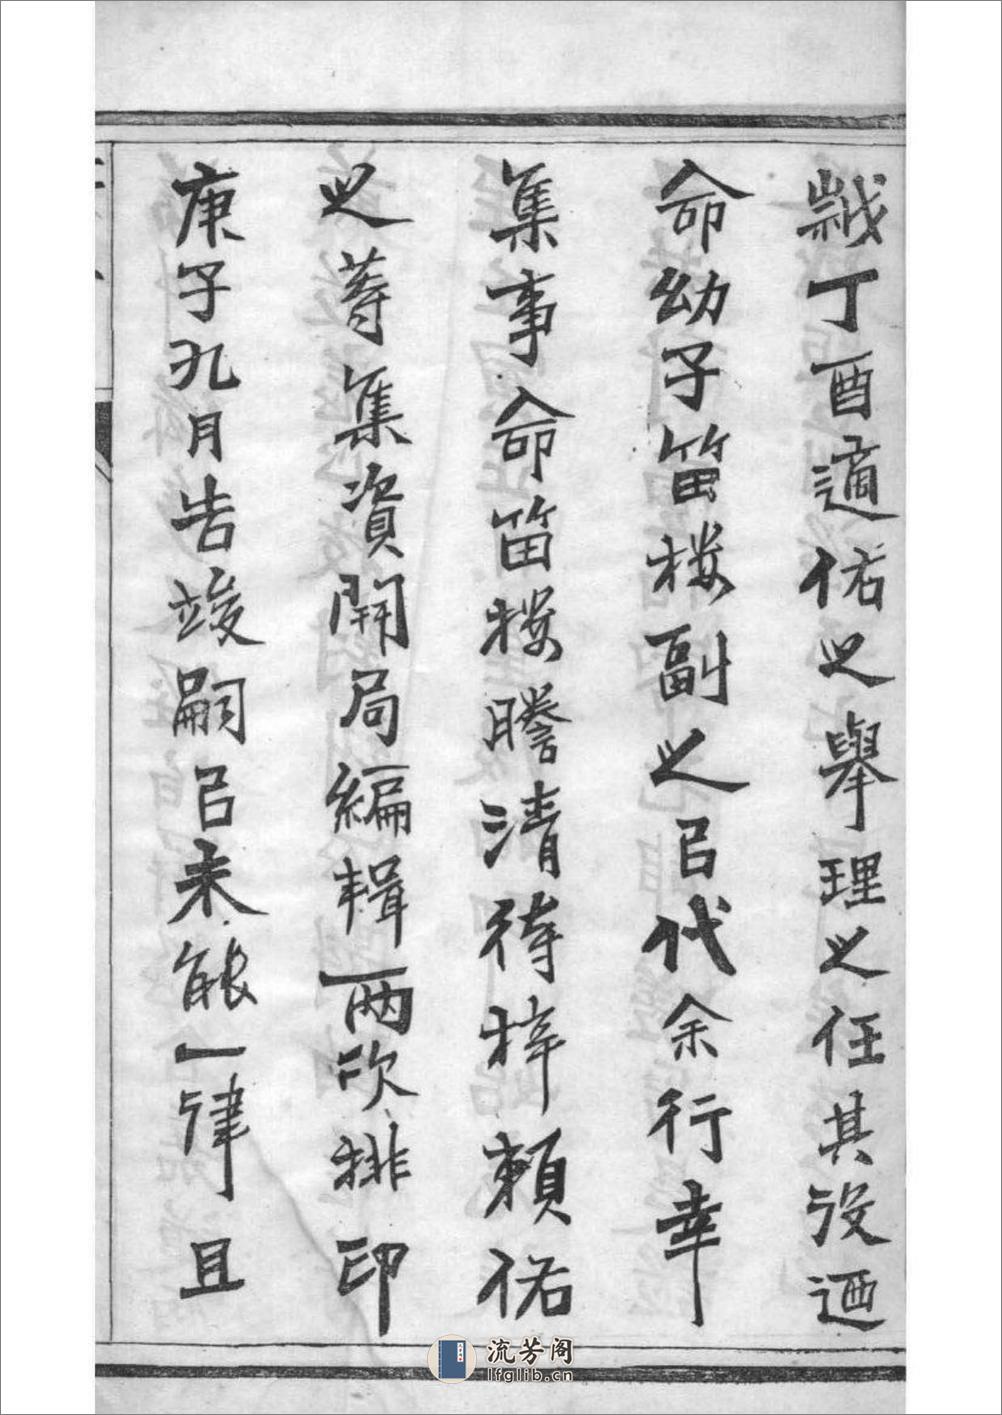 歲丁酉適佑之舉理之任其役迺
命幼子笛楼副之㠯代余行幸
集事命笛楼謄清待梓賴佑
之等集資開局編輯兩次排印
庚子九月告竣嗣㠯未能一律且
流芳阁
lfglib.cn